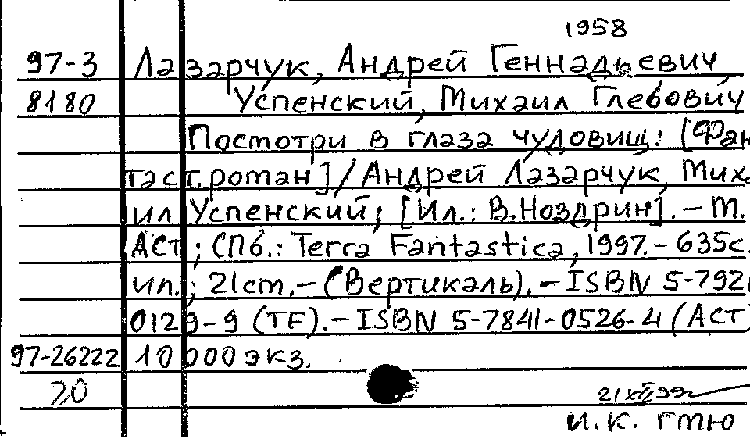 1958
97-3 Лазарчук, Андрей Геннадьевич,
8180 Успенский, Михаил Глебович
Посмотри в глаза чудовищ: [Фан
таст. роман] / Андрей Лазарчук, Мих
ил Успенский; [Ил.: В. Ноздрин]. - М.
АСТ; СПб.: Terra Fantastica, 1997. - 635с.
ил.; 21cm. - (Вертикаль). - ISBN 5-792
0129-9 (TF). - ISBN 5-7841-0526-4 (АСТ)
97-26222 10 000 экз.
20
И.К. ГПЮ